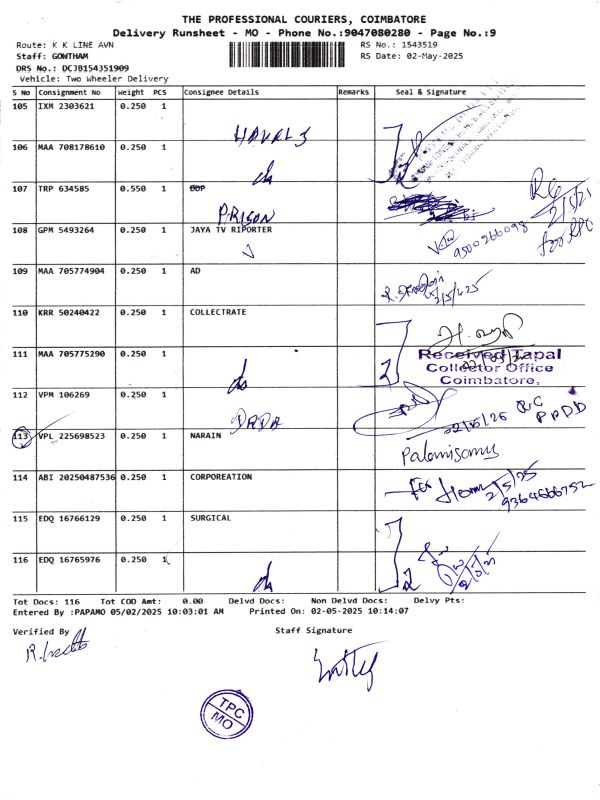 THE PROFESSIONAL COURIERS, COIMBATORE
Delivery Runsheet - MO - Phone No.:9047080280 - Page No.:9
Route: K K LINE AVN RS No.: 1543519
Staff: GOWTHAM RS Date: 02-May-2025
DRS No.: DCJB154351909
Vehicle: Two Wheeler Delivery
S No Consignment No Weight PCS Consignee Details Remarks Seal & Signature
105 IXM 2303621 0.250 1
HAVALS
106 MAA 708178610 0.250 1
do
107 TRP 634585 0.550 1 DDP
PRISON
108 GPM 5493264 0.250 1 JAYA TV RIPORTER
9500266098
109 MAA 705774904 0.250 1 AD
2/5/25
110 KRR 50240422 0.250 1 COLLECTRATE
111 MAA 705775290 0.250 1
do
Received Tapal
Collector Office
Coimbatore,
112 VPM 106269 0.250 1
DRDA
113 VPL 225698523 0.250 1 NARAIN
Palanisamy
114 ABI 20250487536 0.250 1 CORPOREATION
2/5/25
9364666752
115 EDQ 16766129 0.250 1 SURGICAL
116 EDQ 16765976 0.250 1
do
Tot Docs: 116 Tot COD Amt: 0.00 Delvd Docs: Non Delvd Docs: Delvy Pts:
Entered By :PAPAMO 05/02/2025 10:03:01 AM Printed On: 02-05-2025 10:14:07
Verified By Staff Signature
TPC
MO